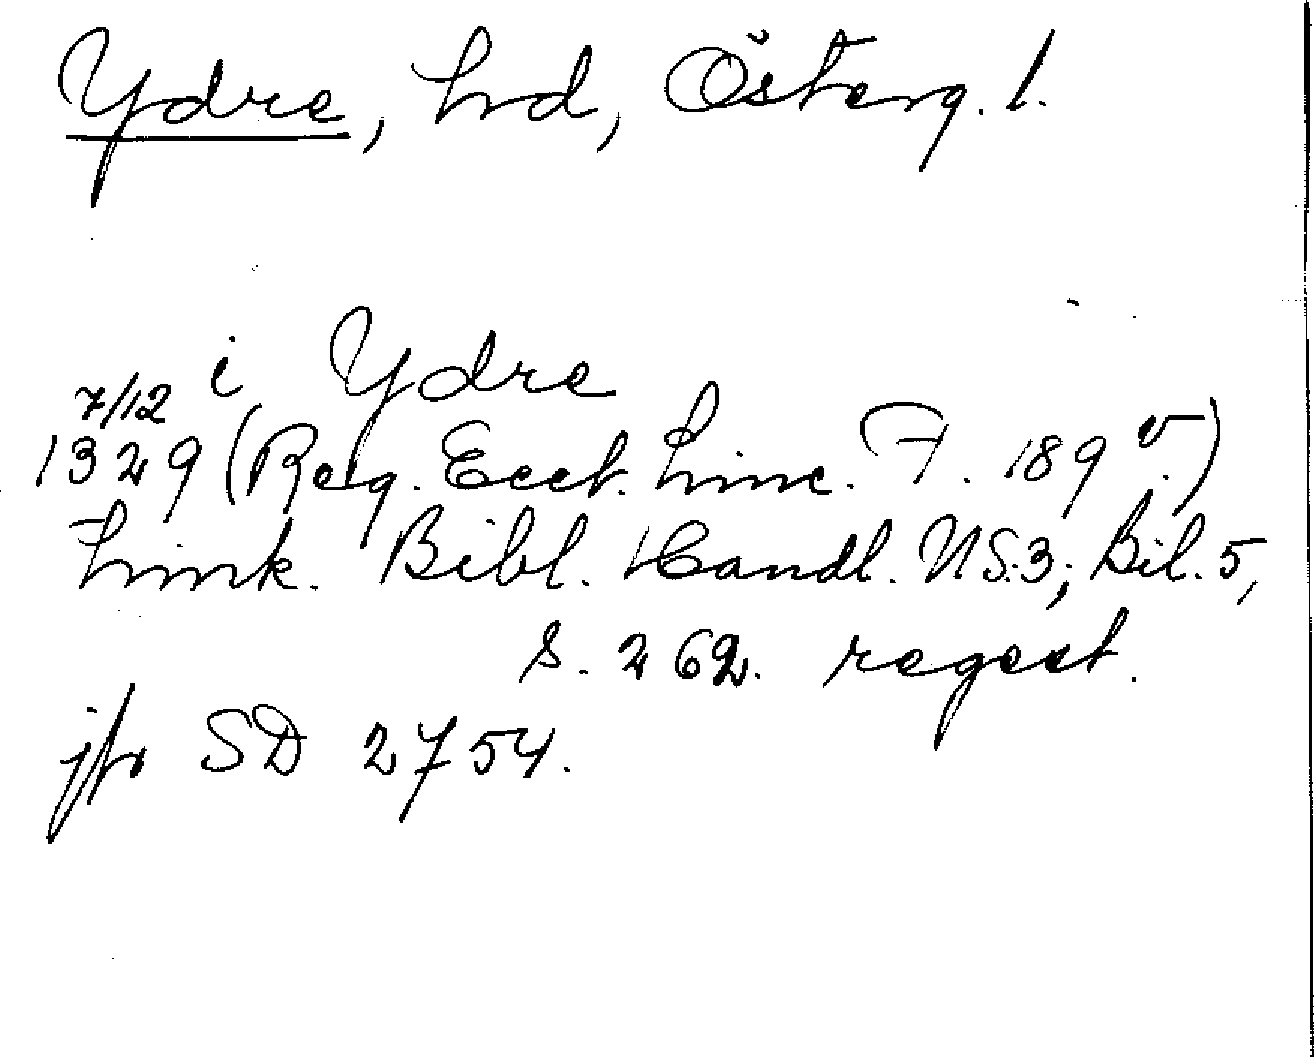 Ydre, hd, Österg. l.
i Ydre
7/12
1329 (Reg. Eccl. Linc. F. 189 v.)
Link. Bibl. Handl. NS.3; Bil. 5,
s. 262. regest.
jfr SD 2754.